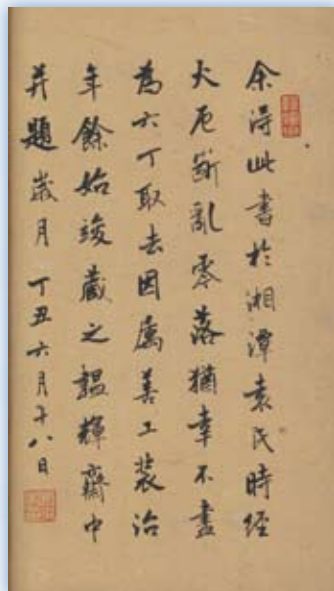 余得此書於湘潭袁氏時經
火厄斷亂零落猶幸不盡
為六丁取去因屬善工裝治
年餘始竣藏之韞輝齋中
并題歲月丁丑六月十八日